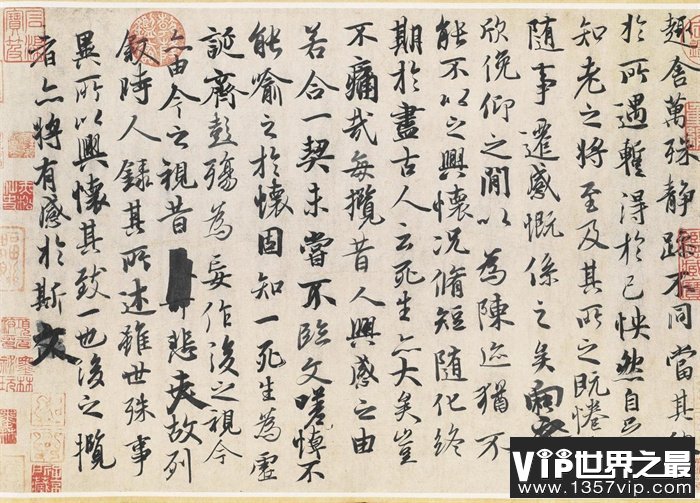 趣舍萬殊靜躁不同當其
於所遇蹔得於己怏然自足
知老之將至及其所之既惓
隨事遷感慨係之矣向之
欣俛仰之閒以為陳迹猶不
能不以之興懷況脩短隨化終
期於盡古人云死生亦大矣豈
不痛哉每攬昔人興感之由
若合一契未嘗不臨文嗟悼不
能喻之於懷固知一死生為虛
誕齊彭殤為妄作後之視今
亦由今之視昔悲夫故列
敘時人錄其所述雖世殊事
異所以興懷其致一也後之攬
者亦將有感於斯文
VIP世界之最
www.1357vip.com